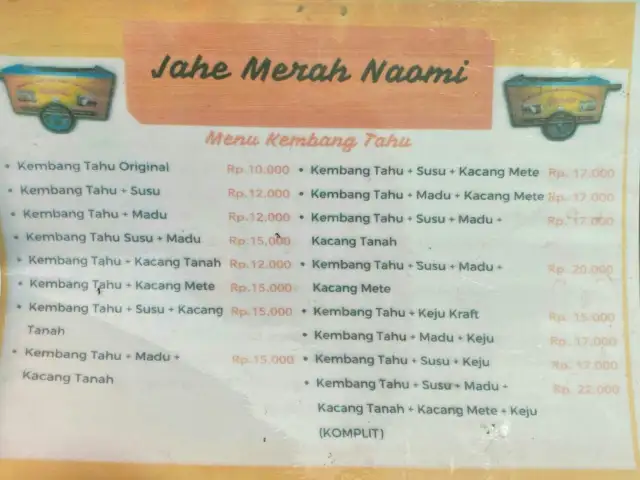 Jahe Merah Naomi
Menu Kembang Tahu
• Kembang Tahu Original Rp.10.000
• Kembang Tahu + Susu Rp.12.000
• Kembang Tahu + Madu Rp.12.000
• Kembang Tahu Susu + Madu Rp.15.000
• Kembang Tahu + Kacang Tanah Rp.12.000
• Kembang Tahu + Kacang Mete Rp.15.000
• Kembang Tahu + Susu + Kacang Rp.15.000
Tanah
• Kembang Tahu + Madu + Rp.15.000
Kacang Tanah
• Kembang Tahu + Susu + Kacang Mete Rp. 17.000
• Kembang Tahu + Madu + Kacang Mete Rp. 17.000
• Kembang Tahu + Susu + Madu + Rp. 17.000
Kacang Tanah
• Kembang Tahu + Susu + Madu + Rp. 20.000
Kacang Mete
• Kembang Tahu + Keju Kraft Rp. 15.000
• Kembang Tahu + Madu + Keju Rp. 17.000
• Kembang Tahu + Susu + Keju Rp. 17.000
• Kembang Tahu + Susu + Madu + Rp. 22.000
Kacang Tanah + Kacang Mete + Keju
(KOMPLIT)